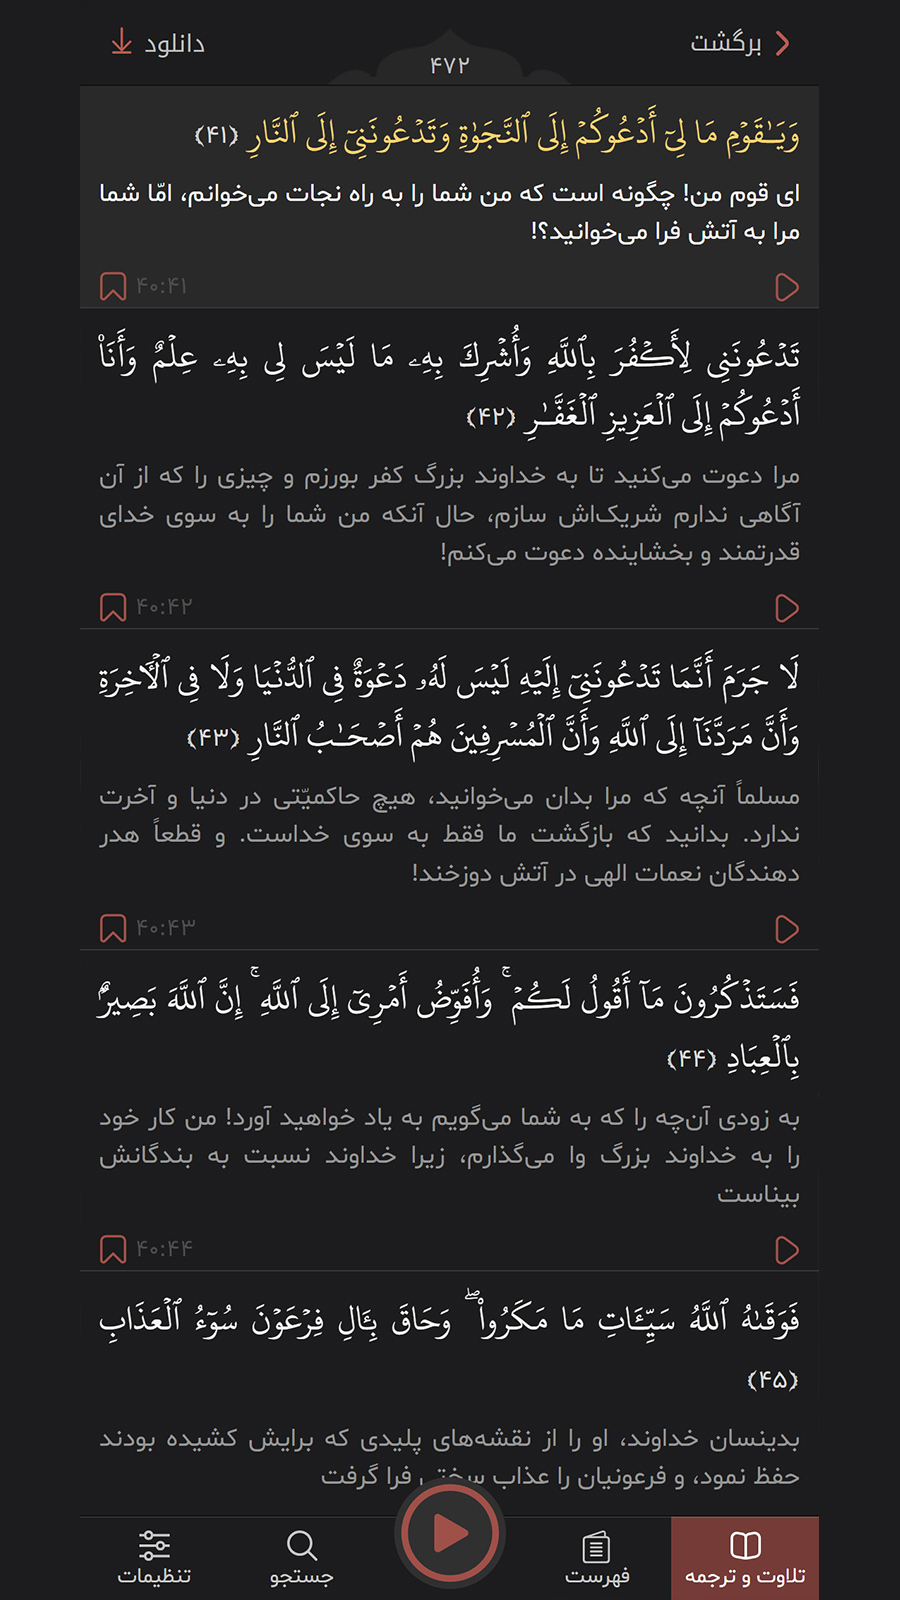 برگشت
۴۷۲
دانلود
وَيَـٰقَوْمِ مَا لِىٓ أَدْعُوكُمْ إِلَى ٱلنَّجَوٰةِ وَتَدْعُونَنِىٓ إِلَى ٱلنَّارِ ﴿۴۱﴾
ای قوم من! چگونه است که من شما را به راه نجات می‌خوانم، امّا شما
مرا به آتش فرا می‌خوانید؟!
۴۰:۴۱
تَدْعُونَنِى لِأَكْفُرَ بِٱللَّهِ وَأُشْرِكَ بِهِۦ مَا لَيْسَ لِى بِهِۦ عِلْمٌ وَأَنَا۠
أَدْعُوكُمْ إِلَى ٱلْعَزِيزِ ٱلْغَفَّـٰرِ ﴿۴۲﴾
مرا دعوت می‌کنید تا به خداوند بزرگ کفر بورزم و چیزی را که از آن
آگاهی ندارم شریک‌اش سازم، حال آنکه من شما را به سوی خدای
قدرتمند و بخشاینده دعوت می‌کنم!
۴۰:۴۲
لَا جَرَمَ أَنَّمَا تَدْعُونَنِىٓ إِلَيْهِ لَيْسَ لَهُۥ دَعْوَةٌ فِى ٱلدُّنْيَا وَلَا فِى ٱلْـَٔاخِرَةِ
وَأَنَّ مَرَدَّنَآ إِلَى ٱللَّهِ وَأَنَّ ٱلْمُسْرِفِينَ هُمْ أَصْحَـٰبُ ٱلنَّارِ ﴿۴۳﴾
مسلماً آنچه که مرا بدان می‌خوانید، هیچ حاکمیّتی در دنیا و آخرت
ندارد. بدانید که بازگشت ما فقط به سوی خداست. و قطعاً هدر
دهندگان نعمات الهی در آتش دوزخند!
۴۰:۴۳
فَسَتَذْكُرُونَ مَآ أَقُولُ لَكُمْ ۚ وَأُفَوِّضُ أَمْرِىٓ إِلَى ٱللَّهِ ۚ إِنَّ ٱللَّهَ بَصِيرٌۢ
بِٱلْعِبَادِ ﴿۴۴﴾
به زودی آن‌چه را که به شما می‌گویم به یاد خواهید آورد! من کار خود
را به خداوند بزرگ وا می‌گذارم، زیرا خداوند نسبت به بندگانش
بیناست
۴۰:۴۴
فَوَقَىٰهُ ٱللَّهُ سَيِّـَٔاتِ مَا مَكَرُوا۟ ۖ وَحَاقَ بِـَٔالِ فِرْعَوْنَ سُوٓءُ ٱلْعَذَابِ
﴿۴۵﴾
بدینسان خداوند، او را از نقشه‌های پلیدی که برایش کشیده بودند
حفظ نمود، و فرعونیان را عذاب سختی فرا گرفت
تلاوت و ترجمه
فهرست
جستجو
تنظیمات